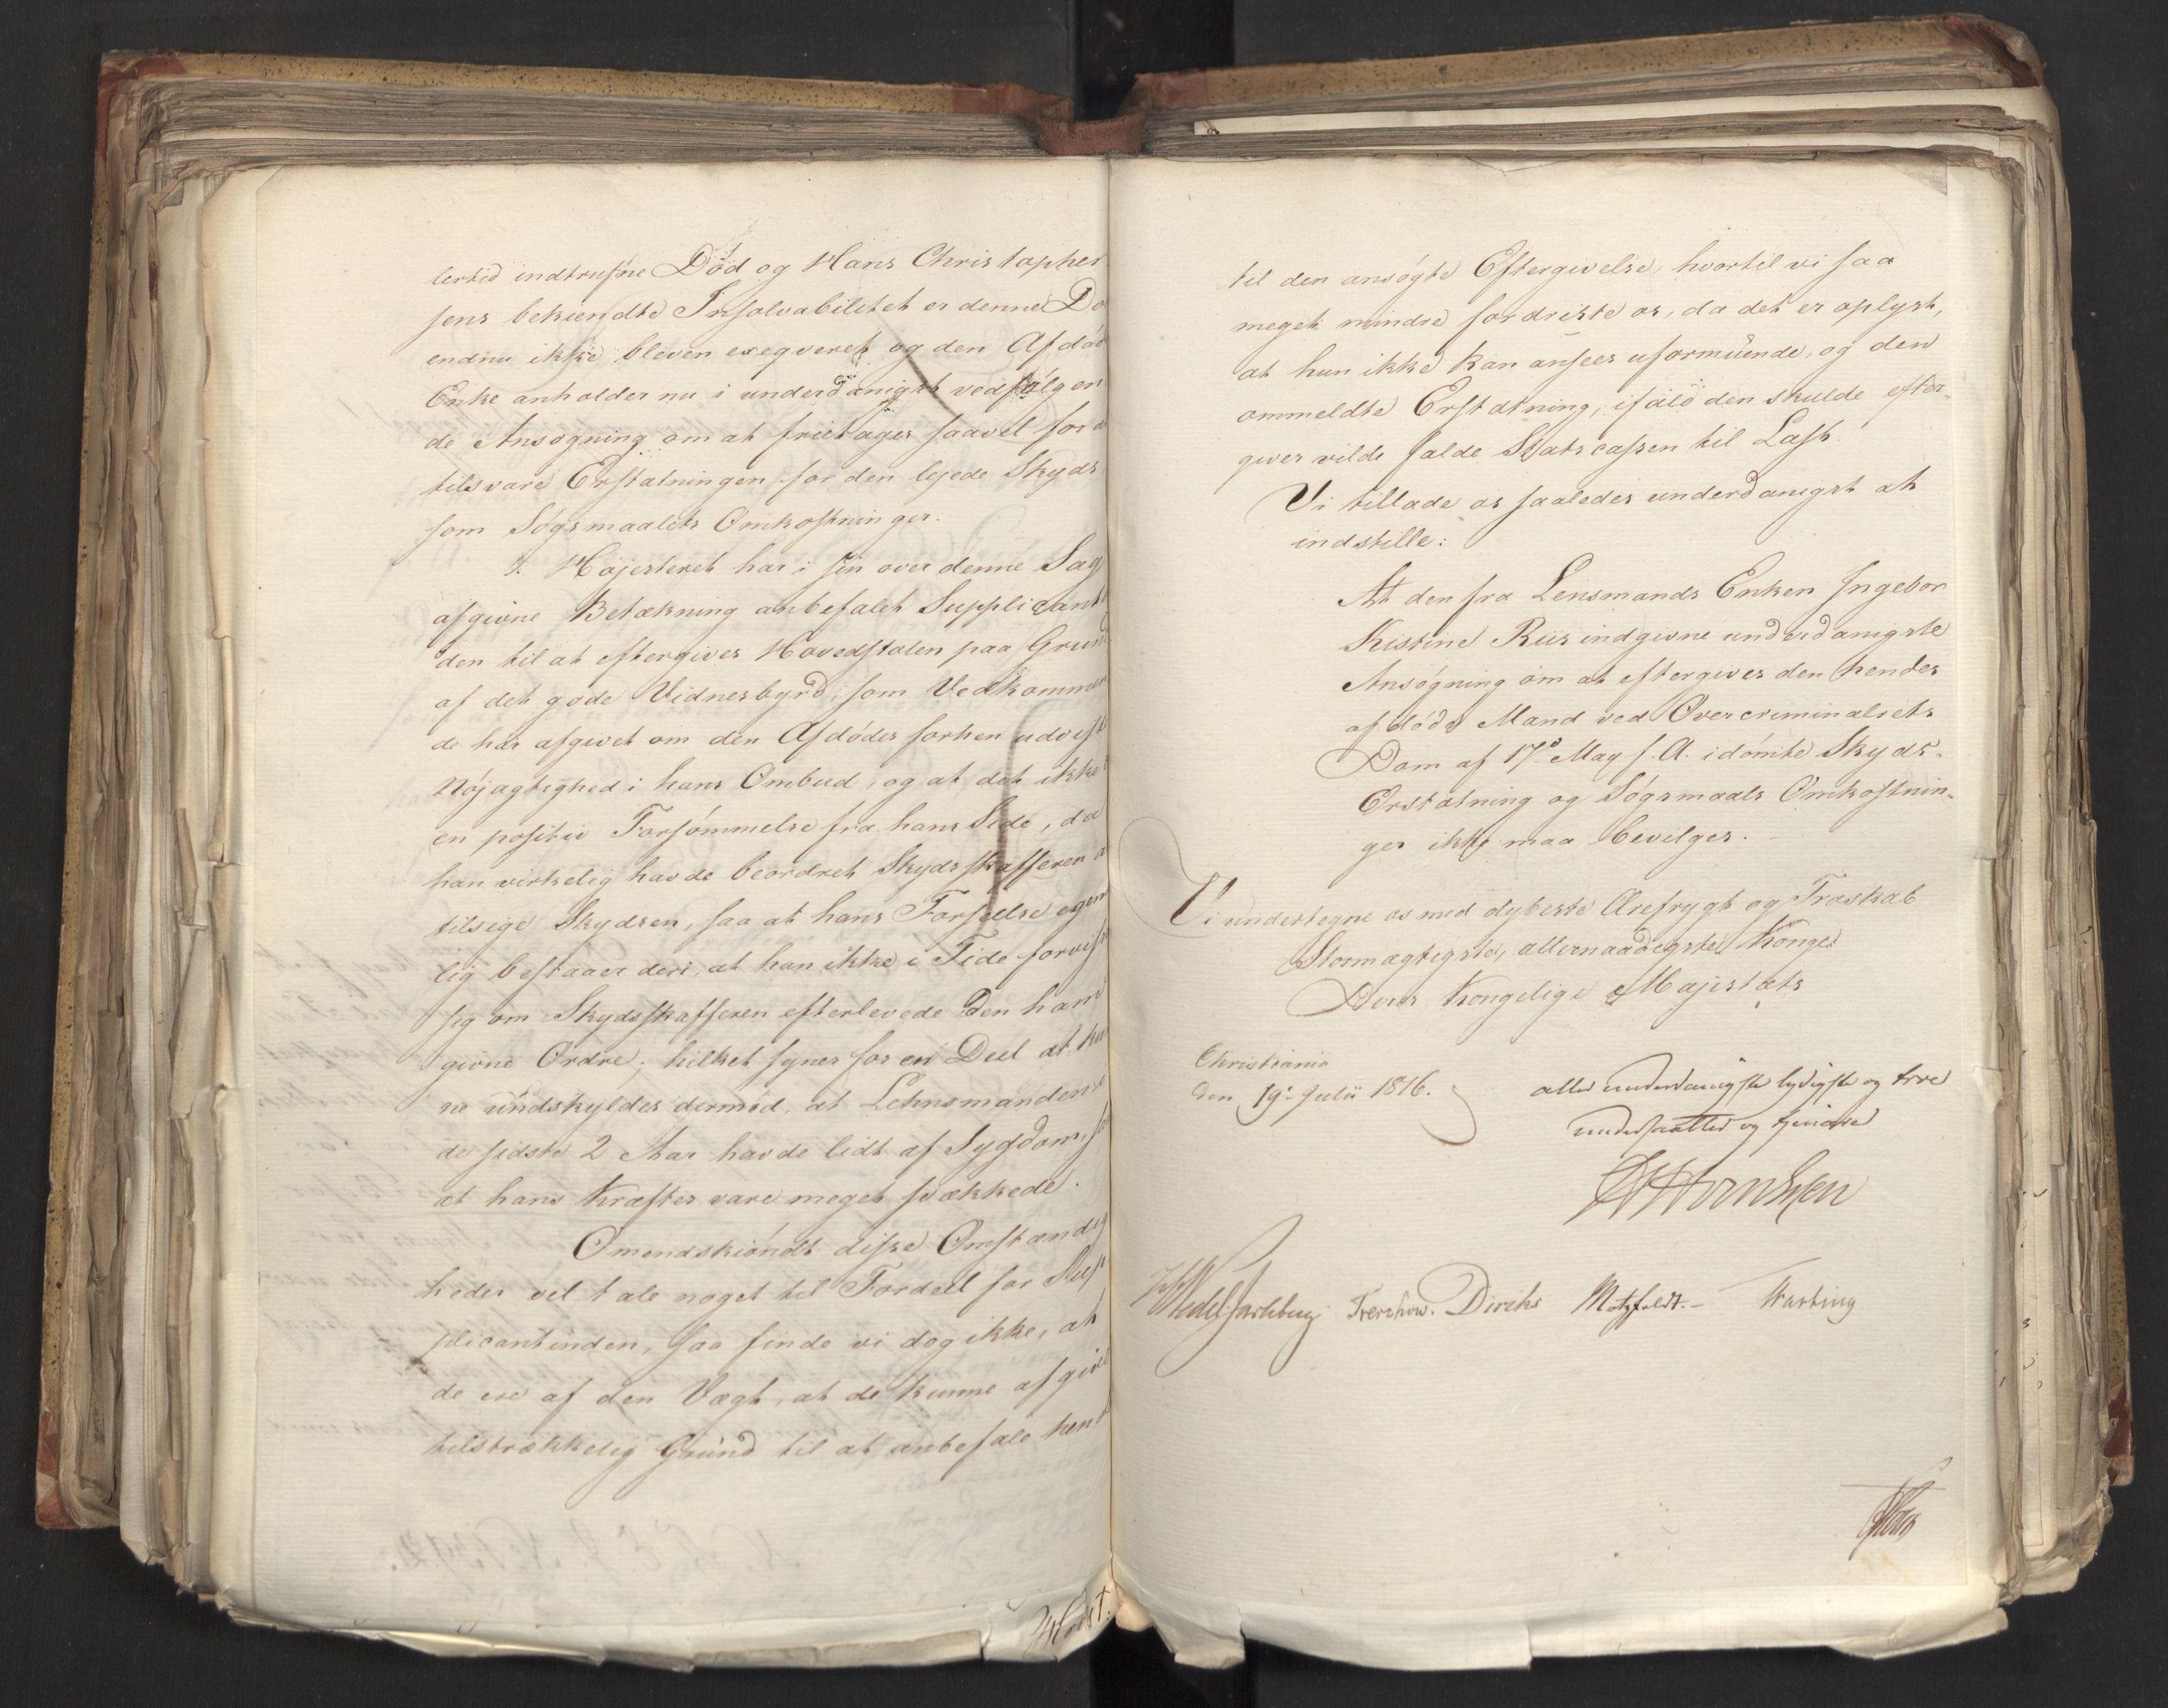 lertid indtrufne Død og Hans Christopher
sens bekiendte Insolvabilitet er denne Do
endnu ikke bleven exeqveret og den Afdød
Enke anholder nu i underdanigst vedfølgen
de Ansøgning om at fritages saavel for a
tilsvare Erstatningen for den lejede Skyds
som Søgsmaalets Omkostninger.
Højesteret har i sin over denne Sag
afgivne Betækning anbefalet Supplicant
den til at eftergives Hovedstolen paa Grund
af det gode Vidnesbyrd, som Vedkommen
de har afgivet om den Afdødes forhen udviste
Nøjagtighed i hans Ombud, og at det ikke
en positiv Forsømmelse fra hans Side, da
han virkelig havde beordret Skydsskafferen a
tilsige Skydsen, saa at hans Forseelse egent
lig bestaaer deri, at han ikke i Tide forviss
sig om Skydsskafferen efterlevede den ham
givne Ordre; hilket synes for en Deel at kun
ne undskyldes dermed, at Lehnsmanden
de sidste 2 Aar havde lidt af Sygdom, s
at hans Kræfter vare meget svækkede.
Omendskiøndt disse Omstændig
heder vel tale noget til Fordeel for Sup
plicantinden, saa finde vi dog ikke, at
de ere af den Vægt, at de kunne afgive
tilstrækkelig Grund til at anbefale hend
til den ansøgte Eftergivelse, hvortil vi saa
meget mindre fordriste os, da det er oplyst,
at hun ikke kan ansees uformuende, og den
ommeldte Erstatning, ifald den skulde efter-
gives vilde falde Statscassen til Last.
Vi tillade os saaledes underdanigst at
indstille:
At den fra Lensmands Enken Ingebor
Kistine Riis indgivne underdanigste
Ansøgning om at eftergives den hendes
afdøde Mand ved Overcriminalrets
Dom af 17d May f. A. idømte Skyds-
Erstatning og Søgsmaals Omkostnin-
ger ikke maa bevilges.
Vi undertegne os med dybeste Ærefrygt og Troskab
Stormægtigste, allernaadigste Konge
Deres Kongelige Majestæts
Christiania
den 19de Julii 1816.
allerunderdanigste lydigste og troe
undersaatter og tjenere
Wedel Jarlsberg Treschow. Diriks Motzfeldt.-